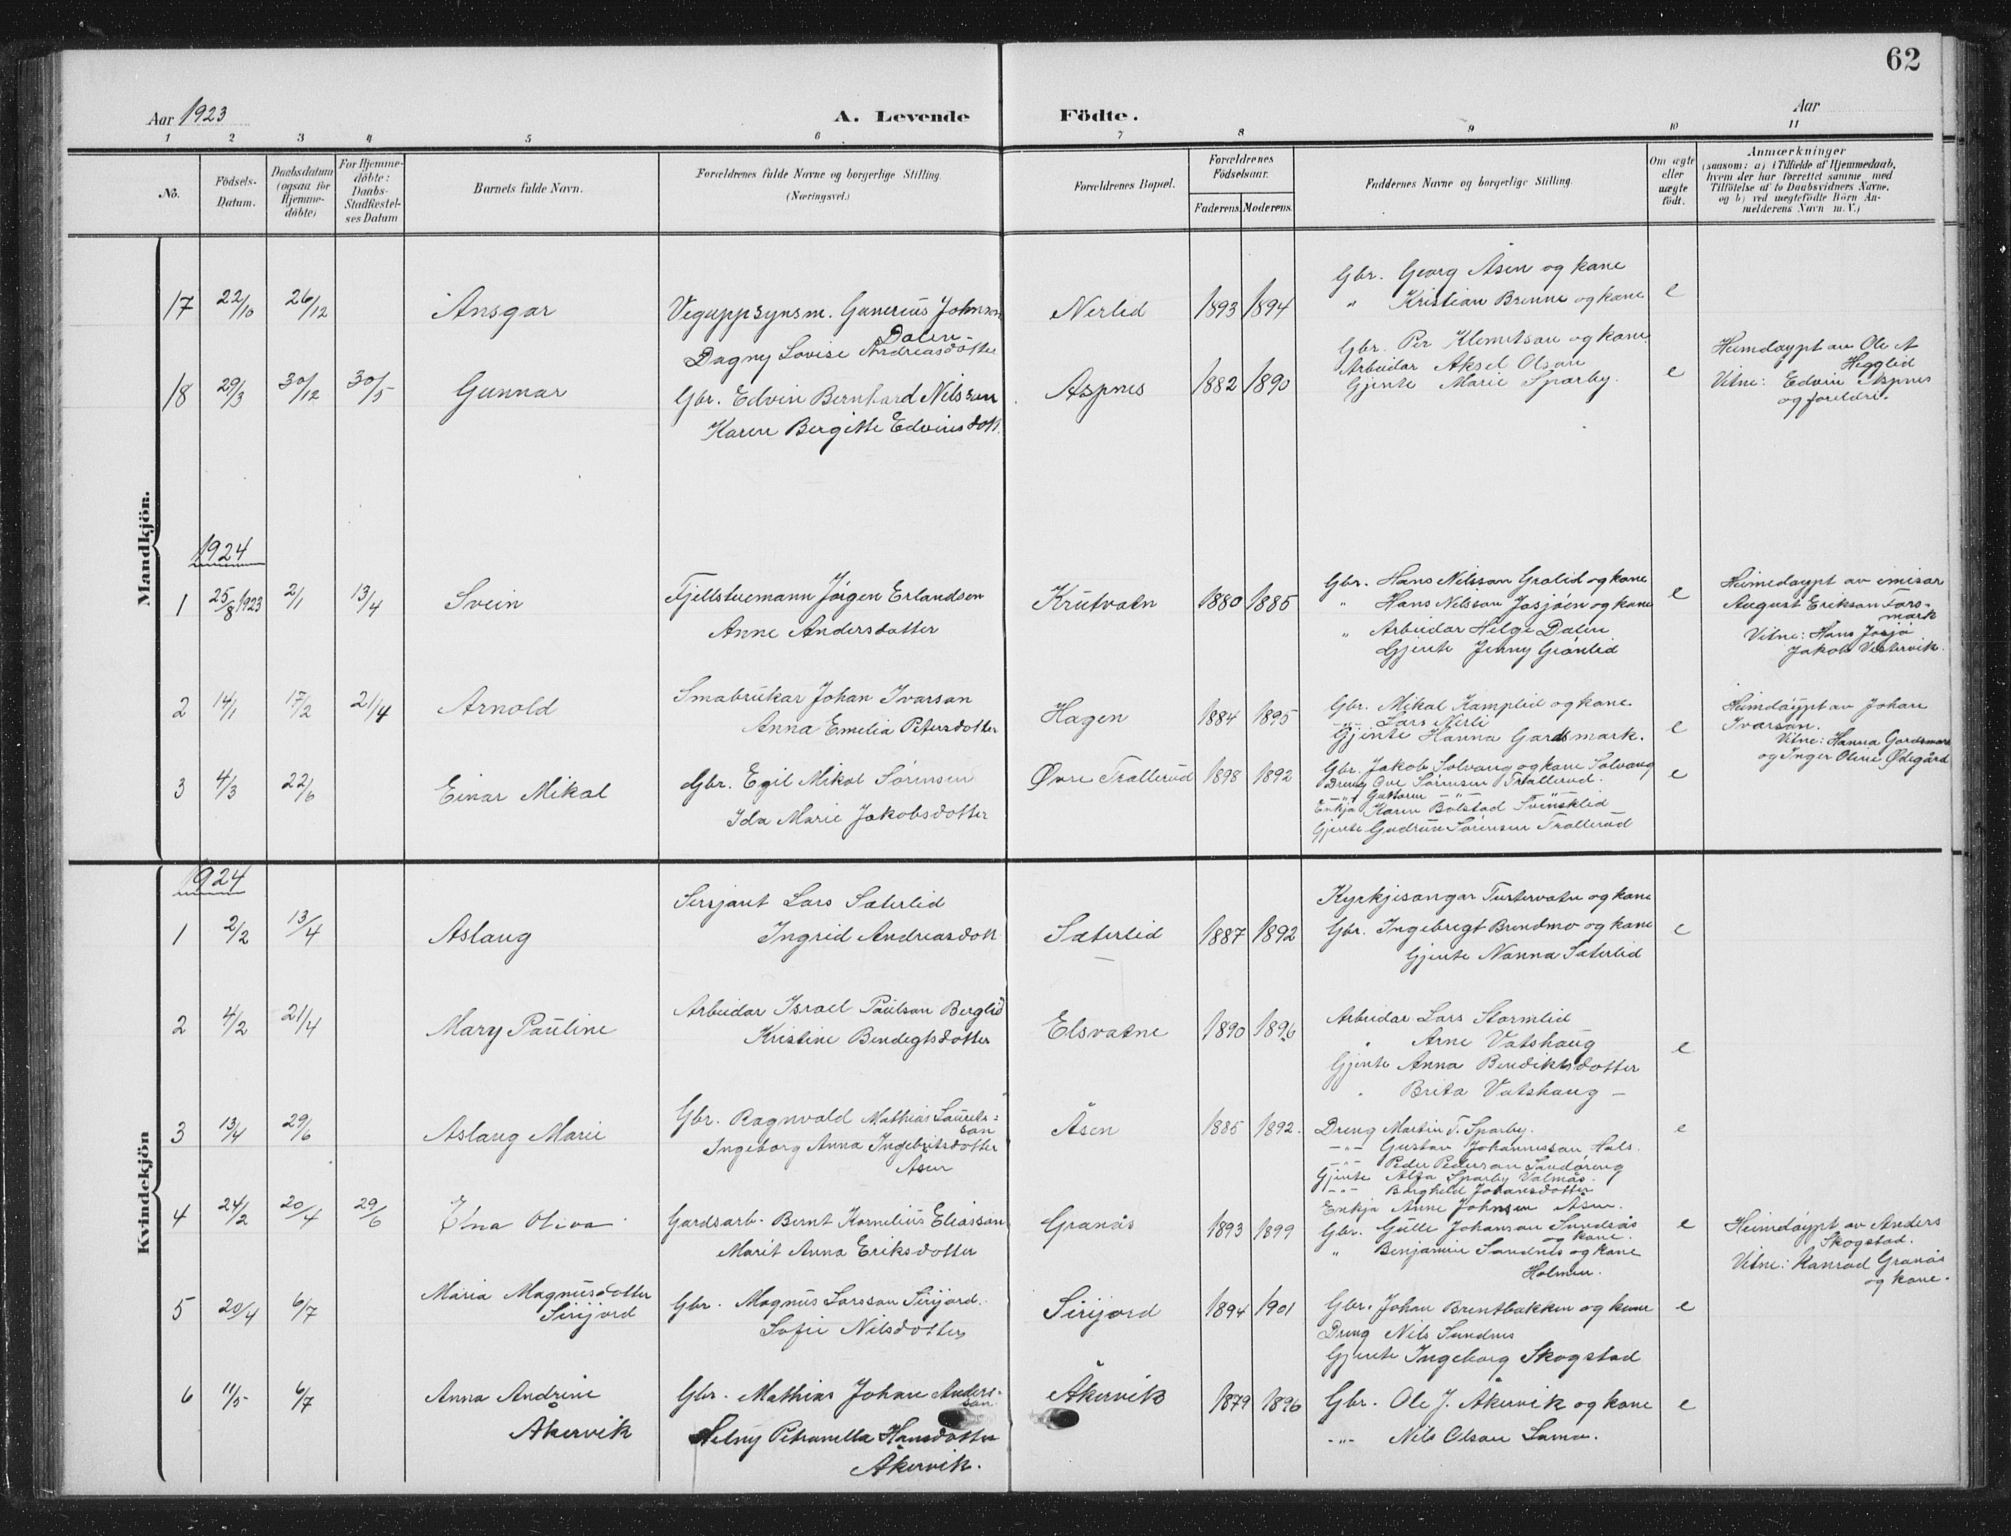 62
Aar 1923
A. Levende Födte.
Aar
1 2 3 4 5 6 7 8 9 10 11
No.
Födsels-Datum.
Daabsdatum (ogsaa for Hjemme-döbte)
For Hjemme-döbte: Daabs-Stadfestel-ses Datum
Barnets fulde Navn.
Forældrenes fulde Navne og borgerlige Stilling.
(Næringsvei.)
Forældrenes Bopæl.
Forældrenes Födselsaar.
Faderens. Moderens.
Faddernes Navne og borgerlige Stilling.
Om ægte eller uægte födt.
Anmærkninger
(saasom: a) i Tilfælde af Hjemmedaab, hvem der har forrettet samme med Tilföielse af to Daabsvidners Navne, og b) ved uægtefödte Börn An-melderens Navn m. V.)
Mandkjön.
17 22/10 26/12 Ansgar
Vegoppsynsm. Gunerius Johnson Dalen
Dagny Lovise Andreasdotter
Nerlid 1893 1894
Gbr. Georg Åsen og kane
" Kristian Brenne og kane
e
18 29/3 30/12 30/5 Gunnar
Gbr. Edvin Bernhard Nilssen
Karen Bergitte Edvinsdott.
Aspnes 1882 1890
Gbr. Per Klemetsan og kane
Arbeidar Aksel Olsan
Gjente Marie Sparby.
e
Heimdøypt av Ole A
Hegglid
Vitne: Edvin Aspnes
og foreldre.
1924
1 25/8 1923 2/1 13/4 Svein
Fjellstuemann Jørgen Erlandsen
Anne Andersdotter
Krutvatn 1880 1885
Gbr. Hans Nilssan Grølid og kane
" Hans Nilssan Jasjøen og kane
" Arbeidar Helge Dalen
Gjente Jenny Grønlid
e
Heimedøypt av emisær
August Eriksan Fors-
mark
Vitne: Hans Jøsjø
Jakob Vestervik.
2 14/1 17/2 21/4 Arnold
Småbrukar Johan Ivarsan
Anna Emelia Petersdotter
Hagen 1884 1895
Gbr. Mikal Kamplid og kane
-"- Lars Nerli
Gjente Hanna Gardsmark.
e
Heimdøypt av Johan
Ivarsan.
Vitne: Hanna Gardsmark
og Inger Oline Ødegård
3 4/3 22/6 Einar Mikal
Gbr. Egil Mikal Sørensen
Ida Marie Jakobsdotter
Øvre Trallerud 1898 1892
Gbr. Jakob Solvang og kane Solvang
Dreng Ove Sørensen Trallerud.
-"- Guttorm -"-
Enkja Karen Bolstad Svensklid
Gjente Gudrun Sørensen Trallerud
e
Kvindekjön
1924
1 2/2 13/4 Aslaug
Sersjant Lars Sæterlid
Ingrid Andreasdott
Sæterlid 1887 1892
Kyrkjesangar Tustervatn og kane
Gbr. Ingebregt Brendmo og kane
Gjente Nanna Sæterlid
e
2 4/2 21/4 Mary Pauline
Arbeidar Israel Paulsan Berglid
Kristine Bendegtsdotter
Elsvatne 1890 1896
Arbeidar Lars Stormlid
" Arne Vatshaug
Gjente Anna Benediktsdotter
" Brita Vatshaug
e
3 13/4 29/6 Aslaug Marie
Gbr. Ragnvald Mathias Laurits-
san
Ingeborg Anna Ingebritsdotter
Åsen
Åsen 1885 1892
Dreng Martin T. Sparby.
-"- Gustav Johannessan Hals.
-"- Peder Pedersan Sandøreng
Gjente Alfa Sparby Valmås.
-"- Borghild Johansdotter
Enkja Anne Johnsen Åsen.
e
4 24/2 20/4 29/6 Edna Oliva
Gardsarb. Bernt Kornelius Eliassan
Marit Anna Eriksdotter
Granås 1893 1899
Gbr. Gulle Johansan Sundsås
og kane.
" Benjamin Sandnes og kane
Holmen.
e
Heimdøypt av Anders
Skogstad.
Vitne: Kanrad Granås
og kane.
5 20/4 6/7 Maria Magnusdotter
Sirijord
Gbr. Magnus Larssan Sirijord.
Sofie Nilsdotter
Sirijord 1894 1901
Gbr. Johan Brentbakken og kane
Dreng Nils Sundnes
Gjente Ingeborg Skogstad
e
6 11/5 6/7 Anna Andrine
Åkervik
Gbr. Mathias Johan Anders-
san
Helny Petranella Hansdotter
Åkervik.
Åkervik 1879 1896
Gbr. Ole J. Åkervik og kane
-"- Nils Olsan Lamo.
e